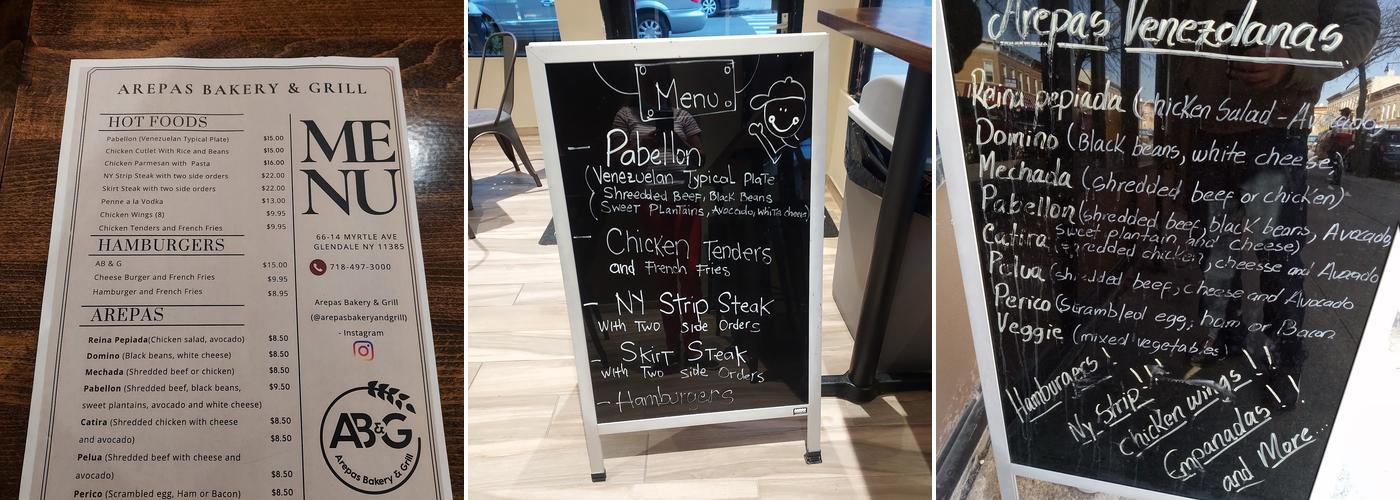 AREPAS BAKERY & GRILL
HOT FOODS
Pabellon (Venezuelan Typical Plate) $15.00
Chicken Cutlet With Rice and Beans $15.00
Chicken Parmesan with Pasta $16.00
NY Strip Steak with two side orders $22.00
Skirt Steak with two side orders $22.00
Penne a la Vodka $13.00
Chicken Wings (8) $9.95
Chicken Tenders and French Fries $9.95
HAMBURGERS
AB & G $15.00
Cheese Burger and French Fries $9.95
Hamburger and French Fries $8.95
AREPAS
Reina Pepiada(Chicken salad, avocado) $8.50
Domino (Black beans, white cheese) $8.50
Mechada (Shredded beef or chicken) $8.50
Pabellon (Shredded beef, black beans, $9.50
sweet plantains, avocado and white cheese)
Catira (Shredded chicken with cheese $8.50
and avocado) $8.50
Pelua (Shredded beef with cheese and
avocado) $8.50
Perico (Scrambled egg, Ham or Bacon) $8.50
ME
NU
66-14 MYRTLE AVE
GLENDALE NY 11385
718-497-3000
Arepas Bakery & Grill
(@arepasbakeryandgrill)
- Instagram
AB&G
Arepas Bakery & Grill
Menu
- Pabellon
(Venezuelan Typical Plate
Shreedded Beef, Black Beans
Sweet Plantains, Avocado, white cheese)
- Chicken Tenders
and French Fries
- NY Strip Steak
with Two side Orders
- Skirt Steak
with Two side Orders
- Hamburgers
Arepas Venezolanas
Reina pepiada (Chicken Salad - Avocado
Domino (Black beans, white cheese)
Mechada (shredded beef or chicken)
Pabellon (shredded beef, black beans, Avocado
sweet plantain, and cheese)
Catira (shredded chicken, cheesse and Avocado
Pelua (shredded beef, cheese and Avocado
Perico (Scrambled egg, ham or Bacon
Veggie (mixed vegetables)
Hamburgers!
Ny Strip!!
chicken wings!!
Empanadas!!
and More...